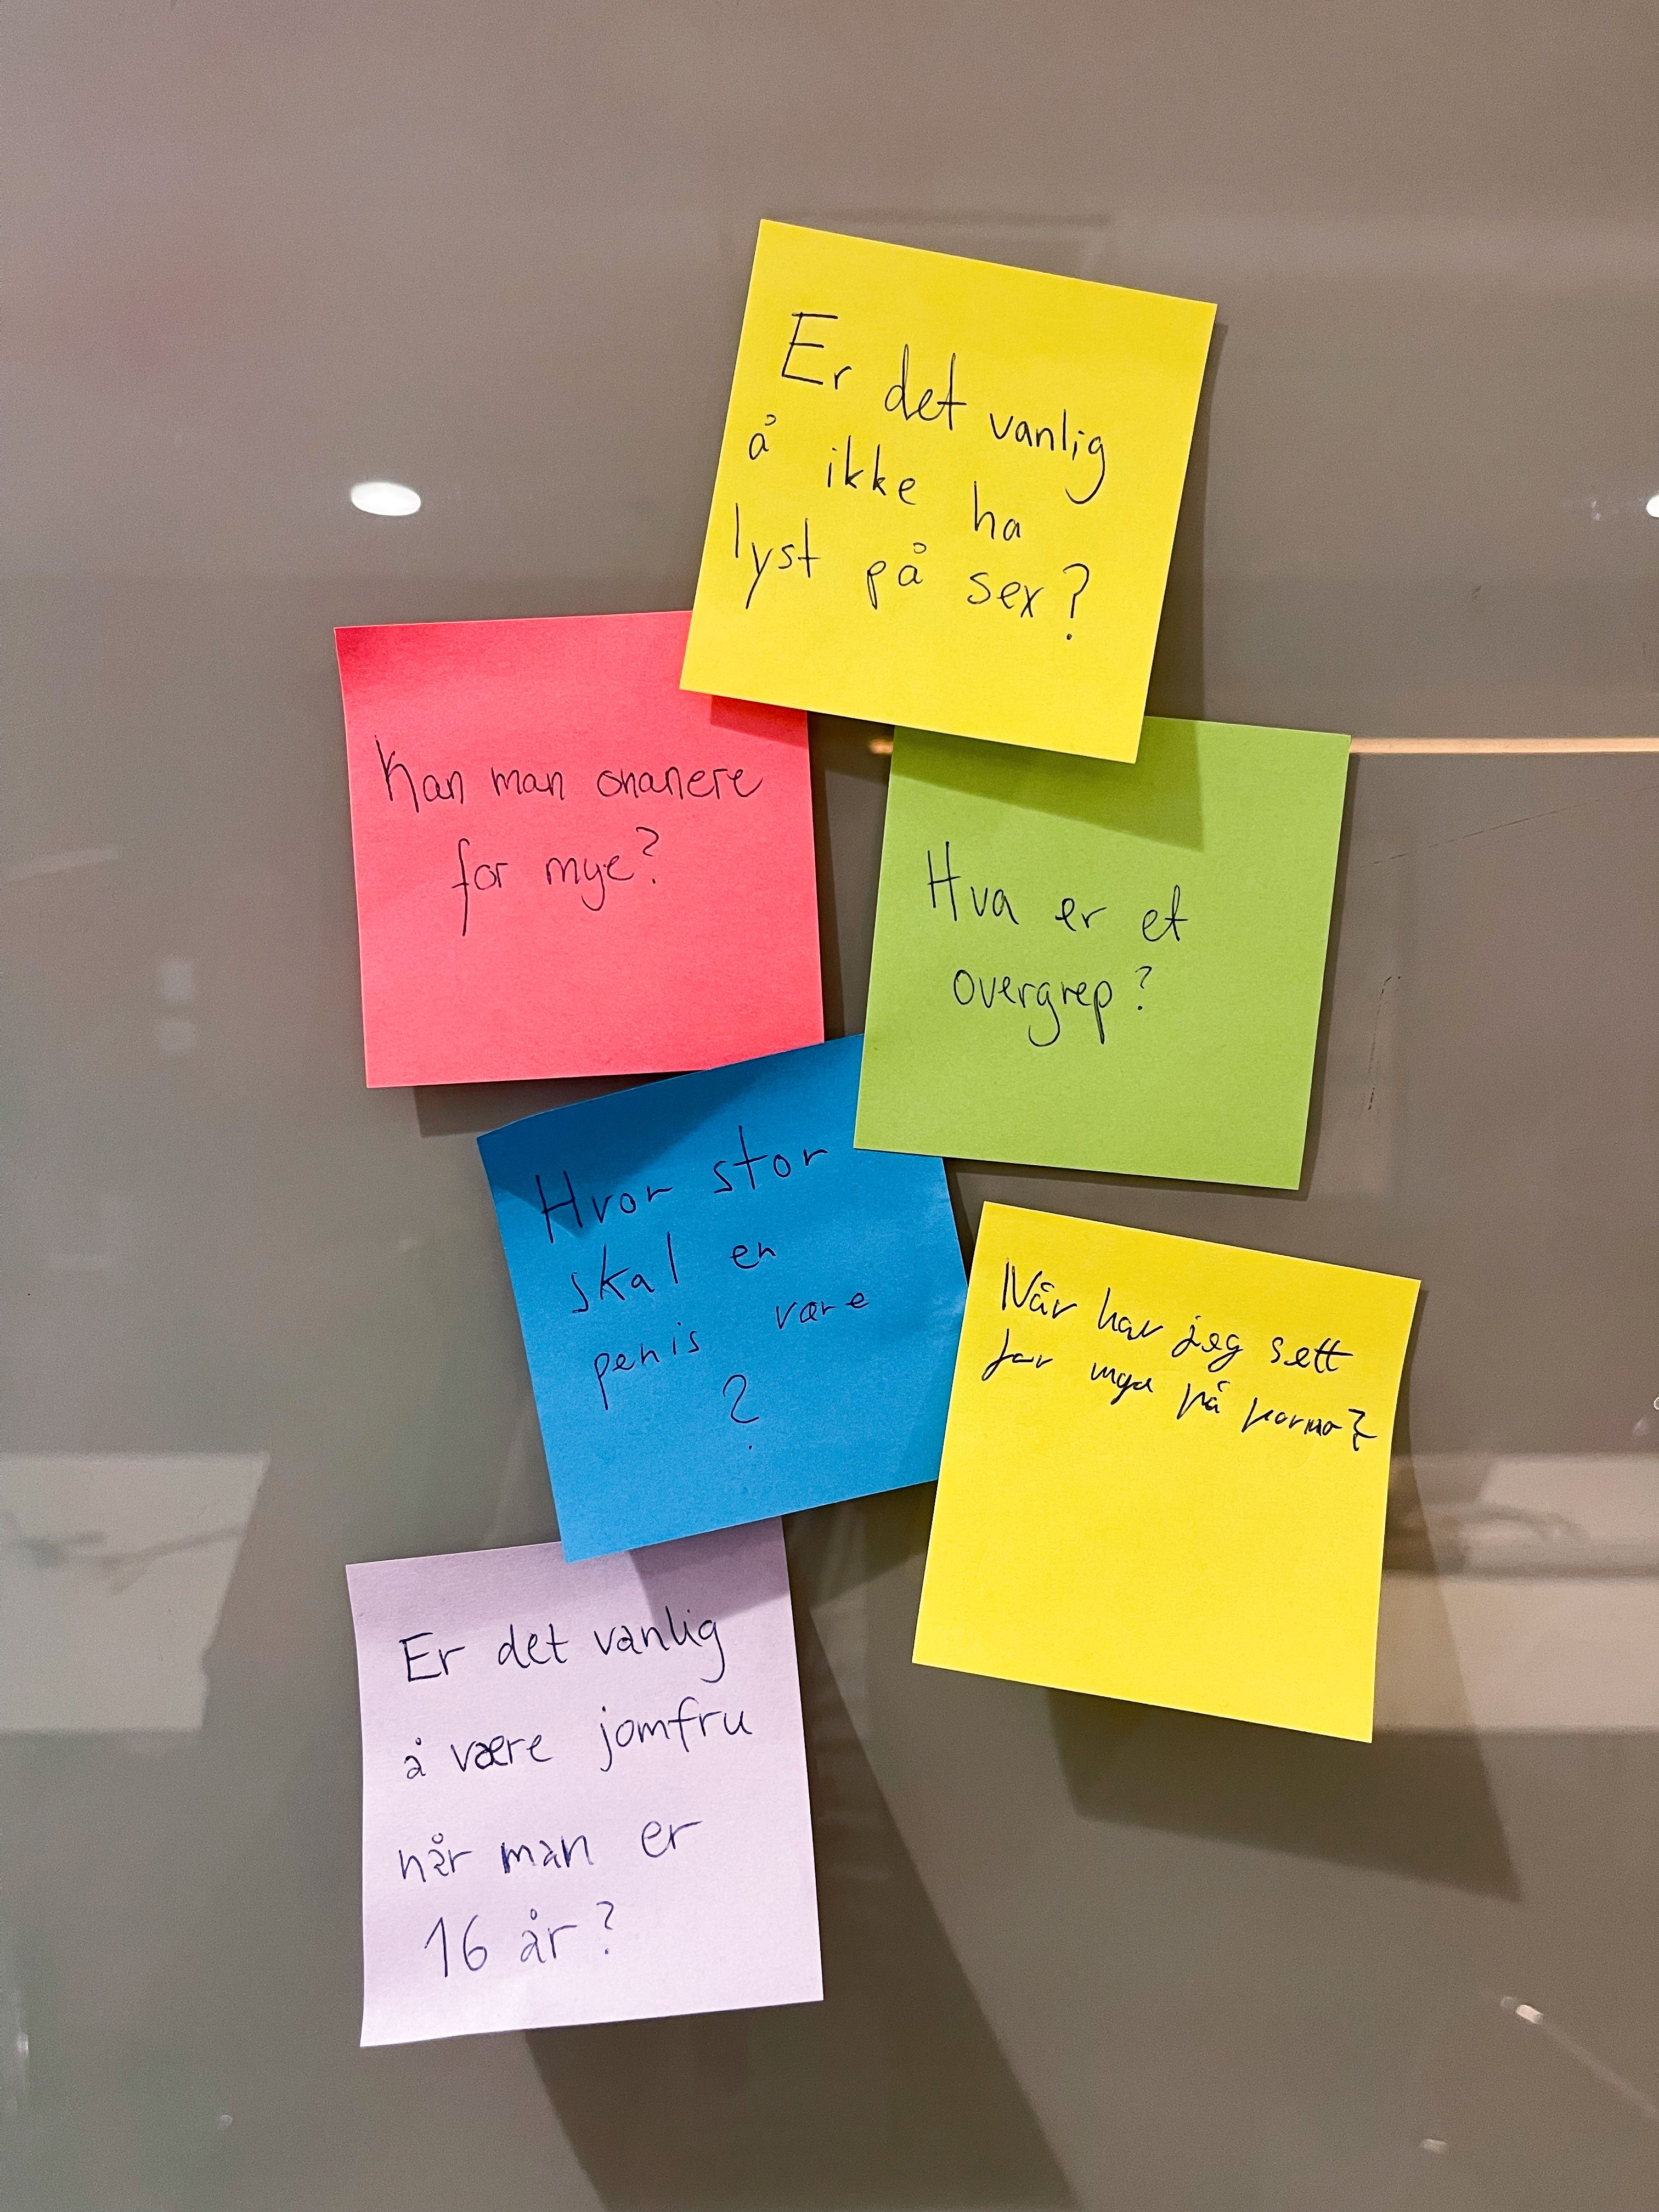 Er det vanlig
å ikke ha
lyst på sex?
Kan man onanere
for mye?
Hva er et
overgrep?
Hvor stor
skal en
penis være
?
Når har jeg sett
for mye på porno?
Er det vanlig
å være jomfru
når man er
16 år?